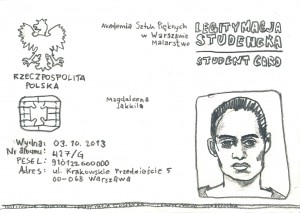 Akademia Sztuk Pięknych
w Warszawie
Malarstwo
LEGITYMACJA
STUDENCKA
STUDENT CARD
RZECZPOSPOLITA
POLSKA
Magdaleena
Jakkila
Wydana: 03.10.2013
Nr albumu: 417/G
PESEL: 910122600000
Adres: ul. Krakowskie Przedmieście 5
00-068 Warszawa